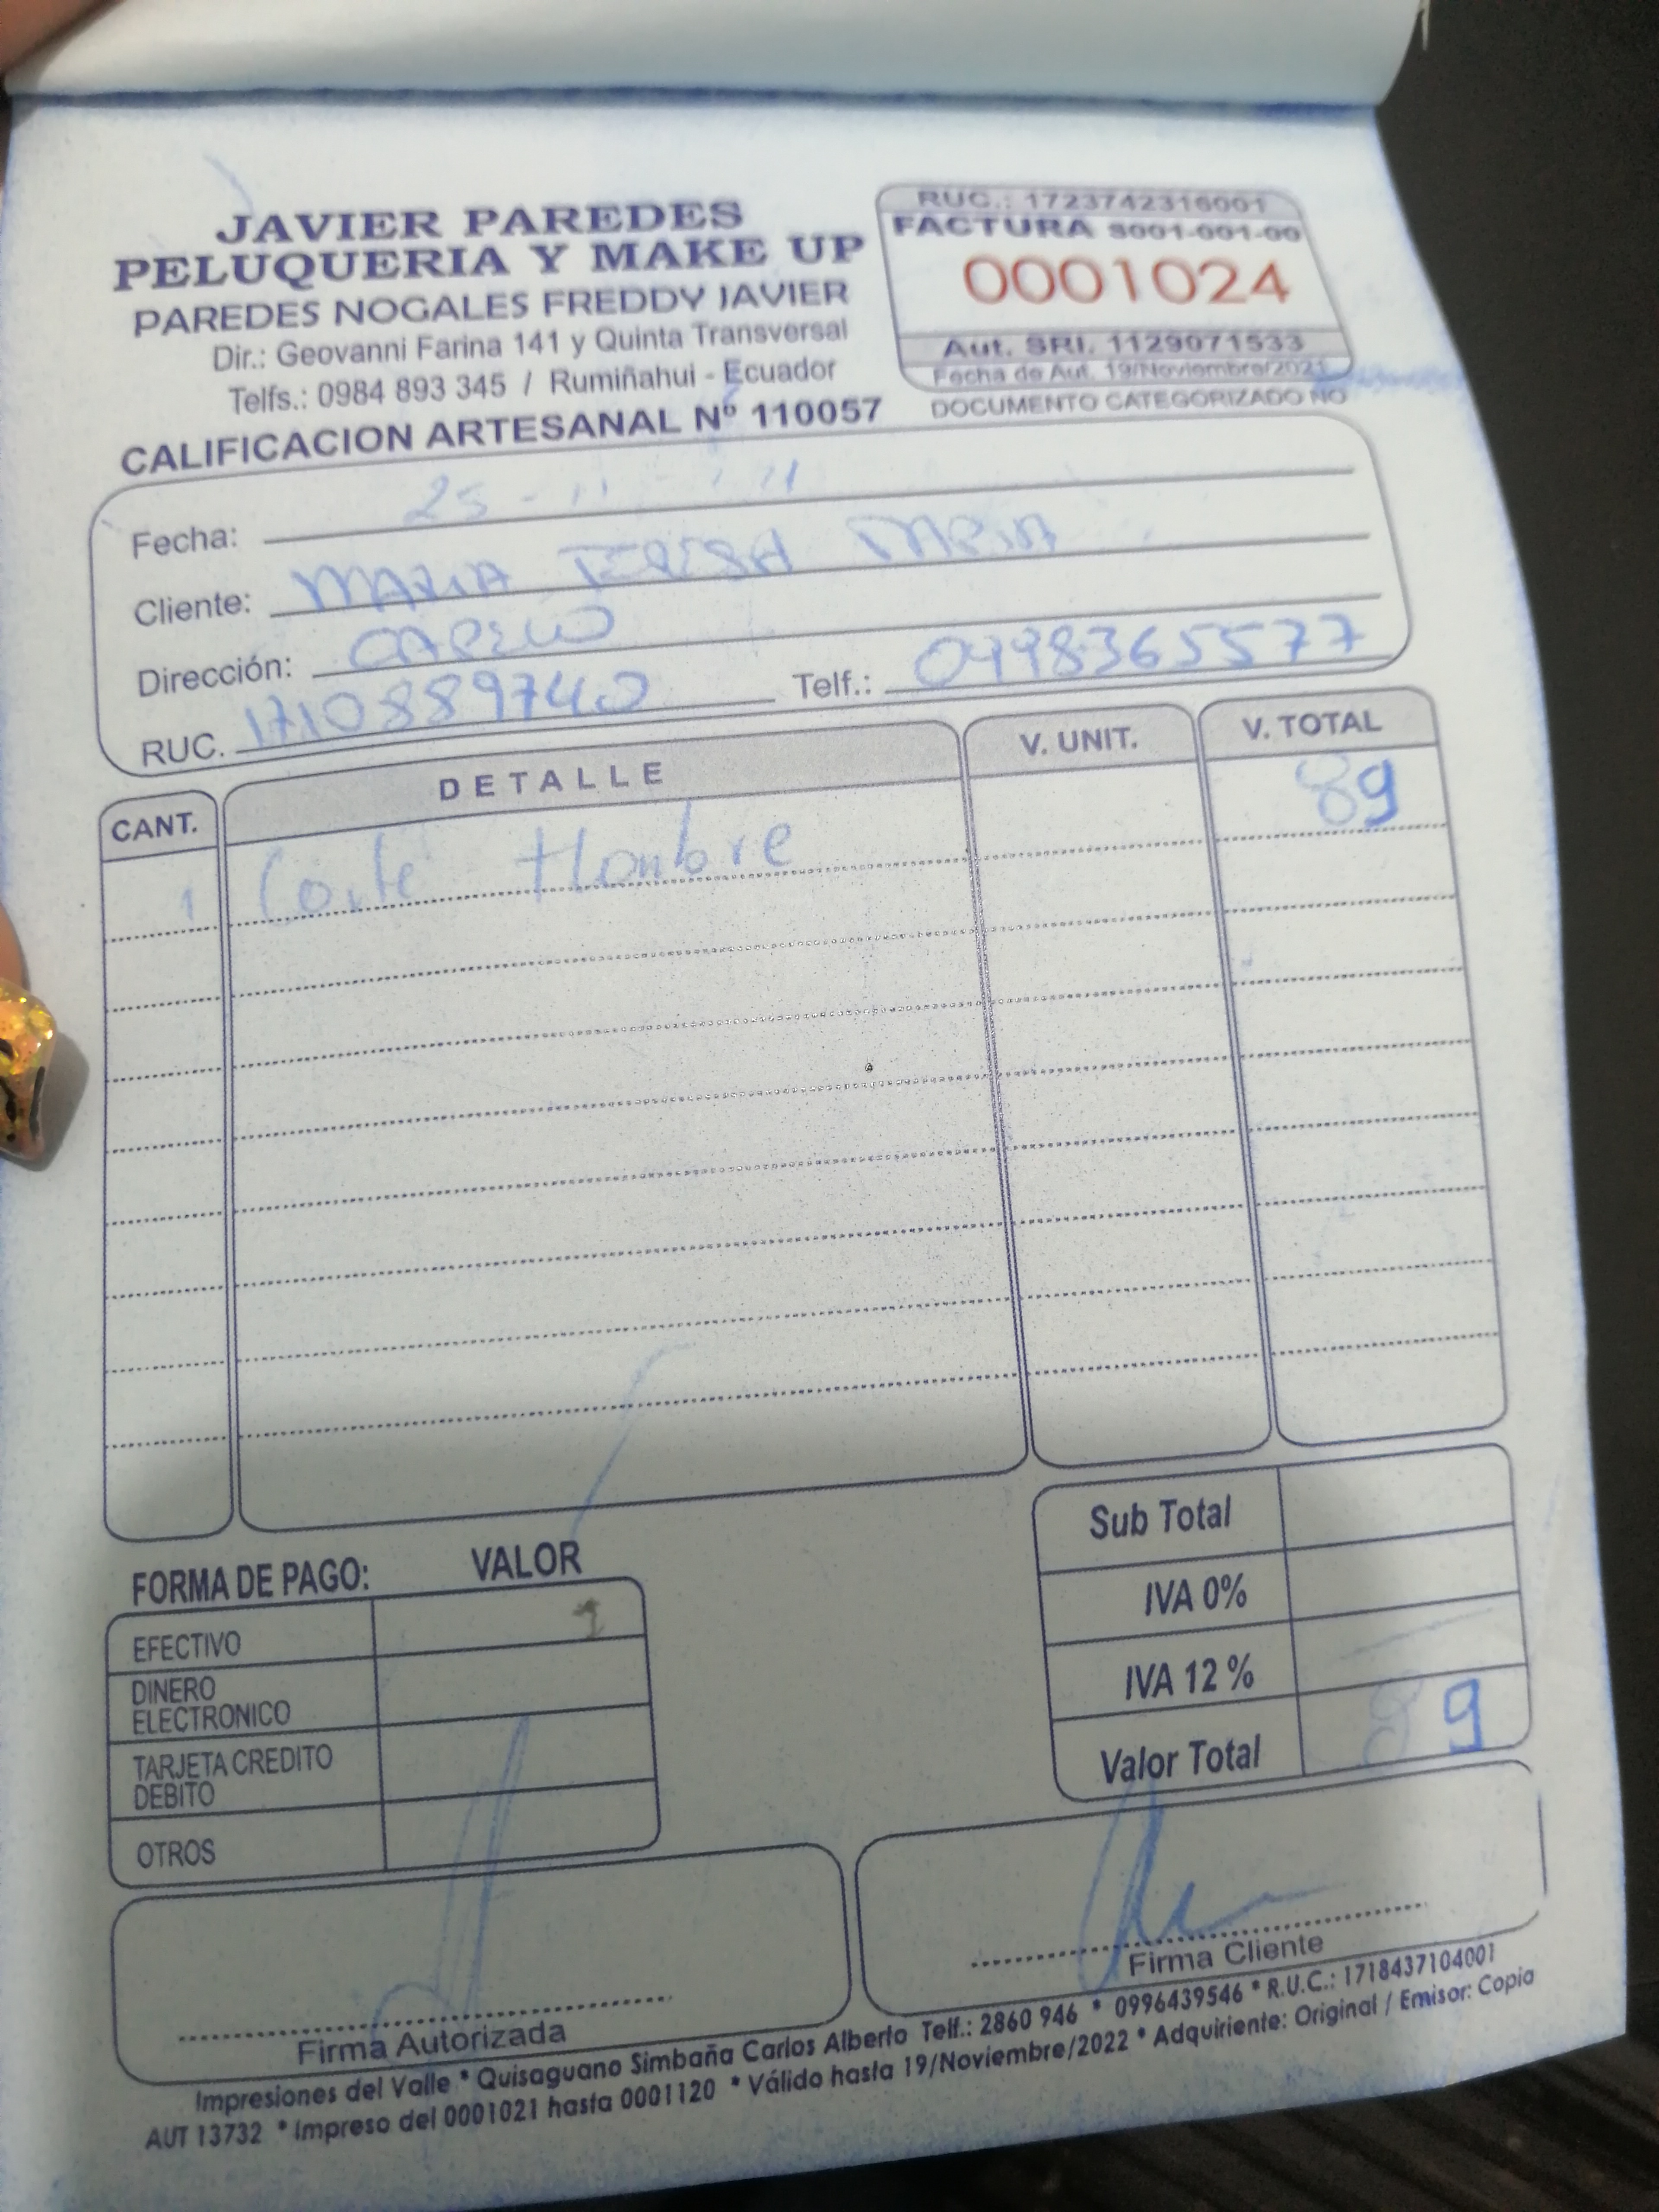 JAVIER PAREDES
PELUQUERIA Y MAKE UP
PAREDES NOGALES FREDDY JAVIER
Dir.: Geovanni Farina 141 y Quinta Transversal
Telfs.: 0984 893 345 / Rumiñahui - Ecuador
CALIFICACION ARTESANAL Nº 110057
RUC.: 1723742316001
FACTURA S001-001-00
0001024
Aut. SRI. 1129071533
Fecha de Aut. 19/Noviembre/2021
DOCUMENTO CATEGORIZADO NO
Fecha: 25 - 11 -
Cliente: MARIA TERESA
Dirección: CAPELO
RUC. 1710889740 Telf.: 0998365577
CANT. DETALLE V. UNIT. V. TOTAL
1 Corte Hombre 9
FORMA DE PAGO: VALOR
EFECTIVO
DINERO ELECTRONICO
TARJETA CREDITO DEBITO
OTROS
Sub Total
IVA 0%
IVA 12 %
Valor Total 9
Firma Autorizada
Firma Cliente
Impresiones del Valle * Quisaguano Simbaña Carlos Alberto Telf.: 2860 946 * 0996439546 * R.U.C.: 1718437104001
AUT 13732 * Impreso del 0001021 hasta 0001120 * Válido hasta 19/Noviembre/2022 * Adquiriente: Original / Emisor: Copia